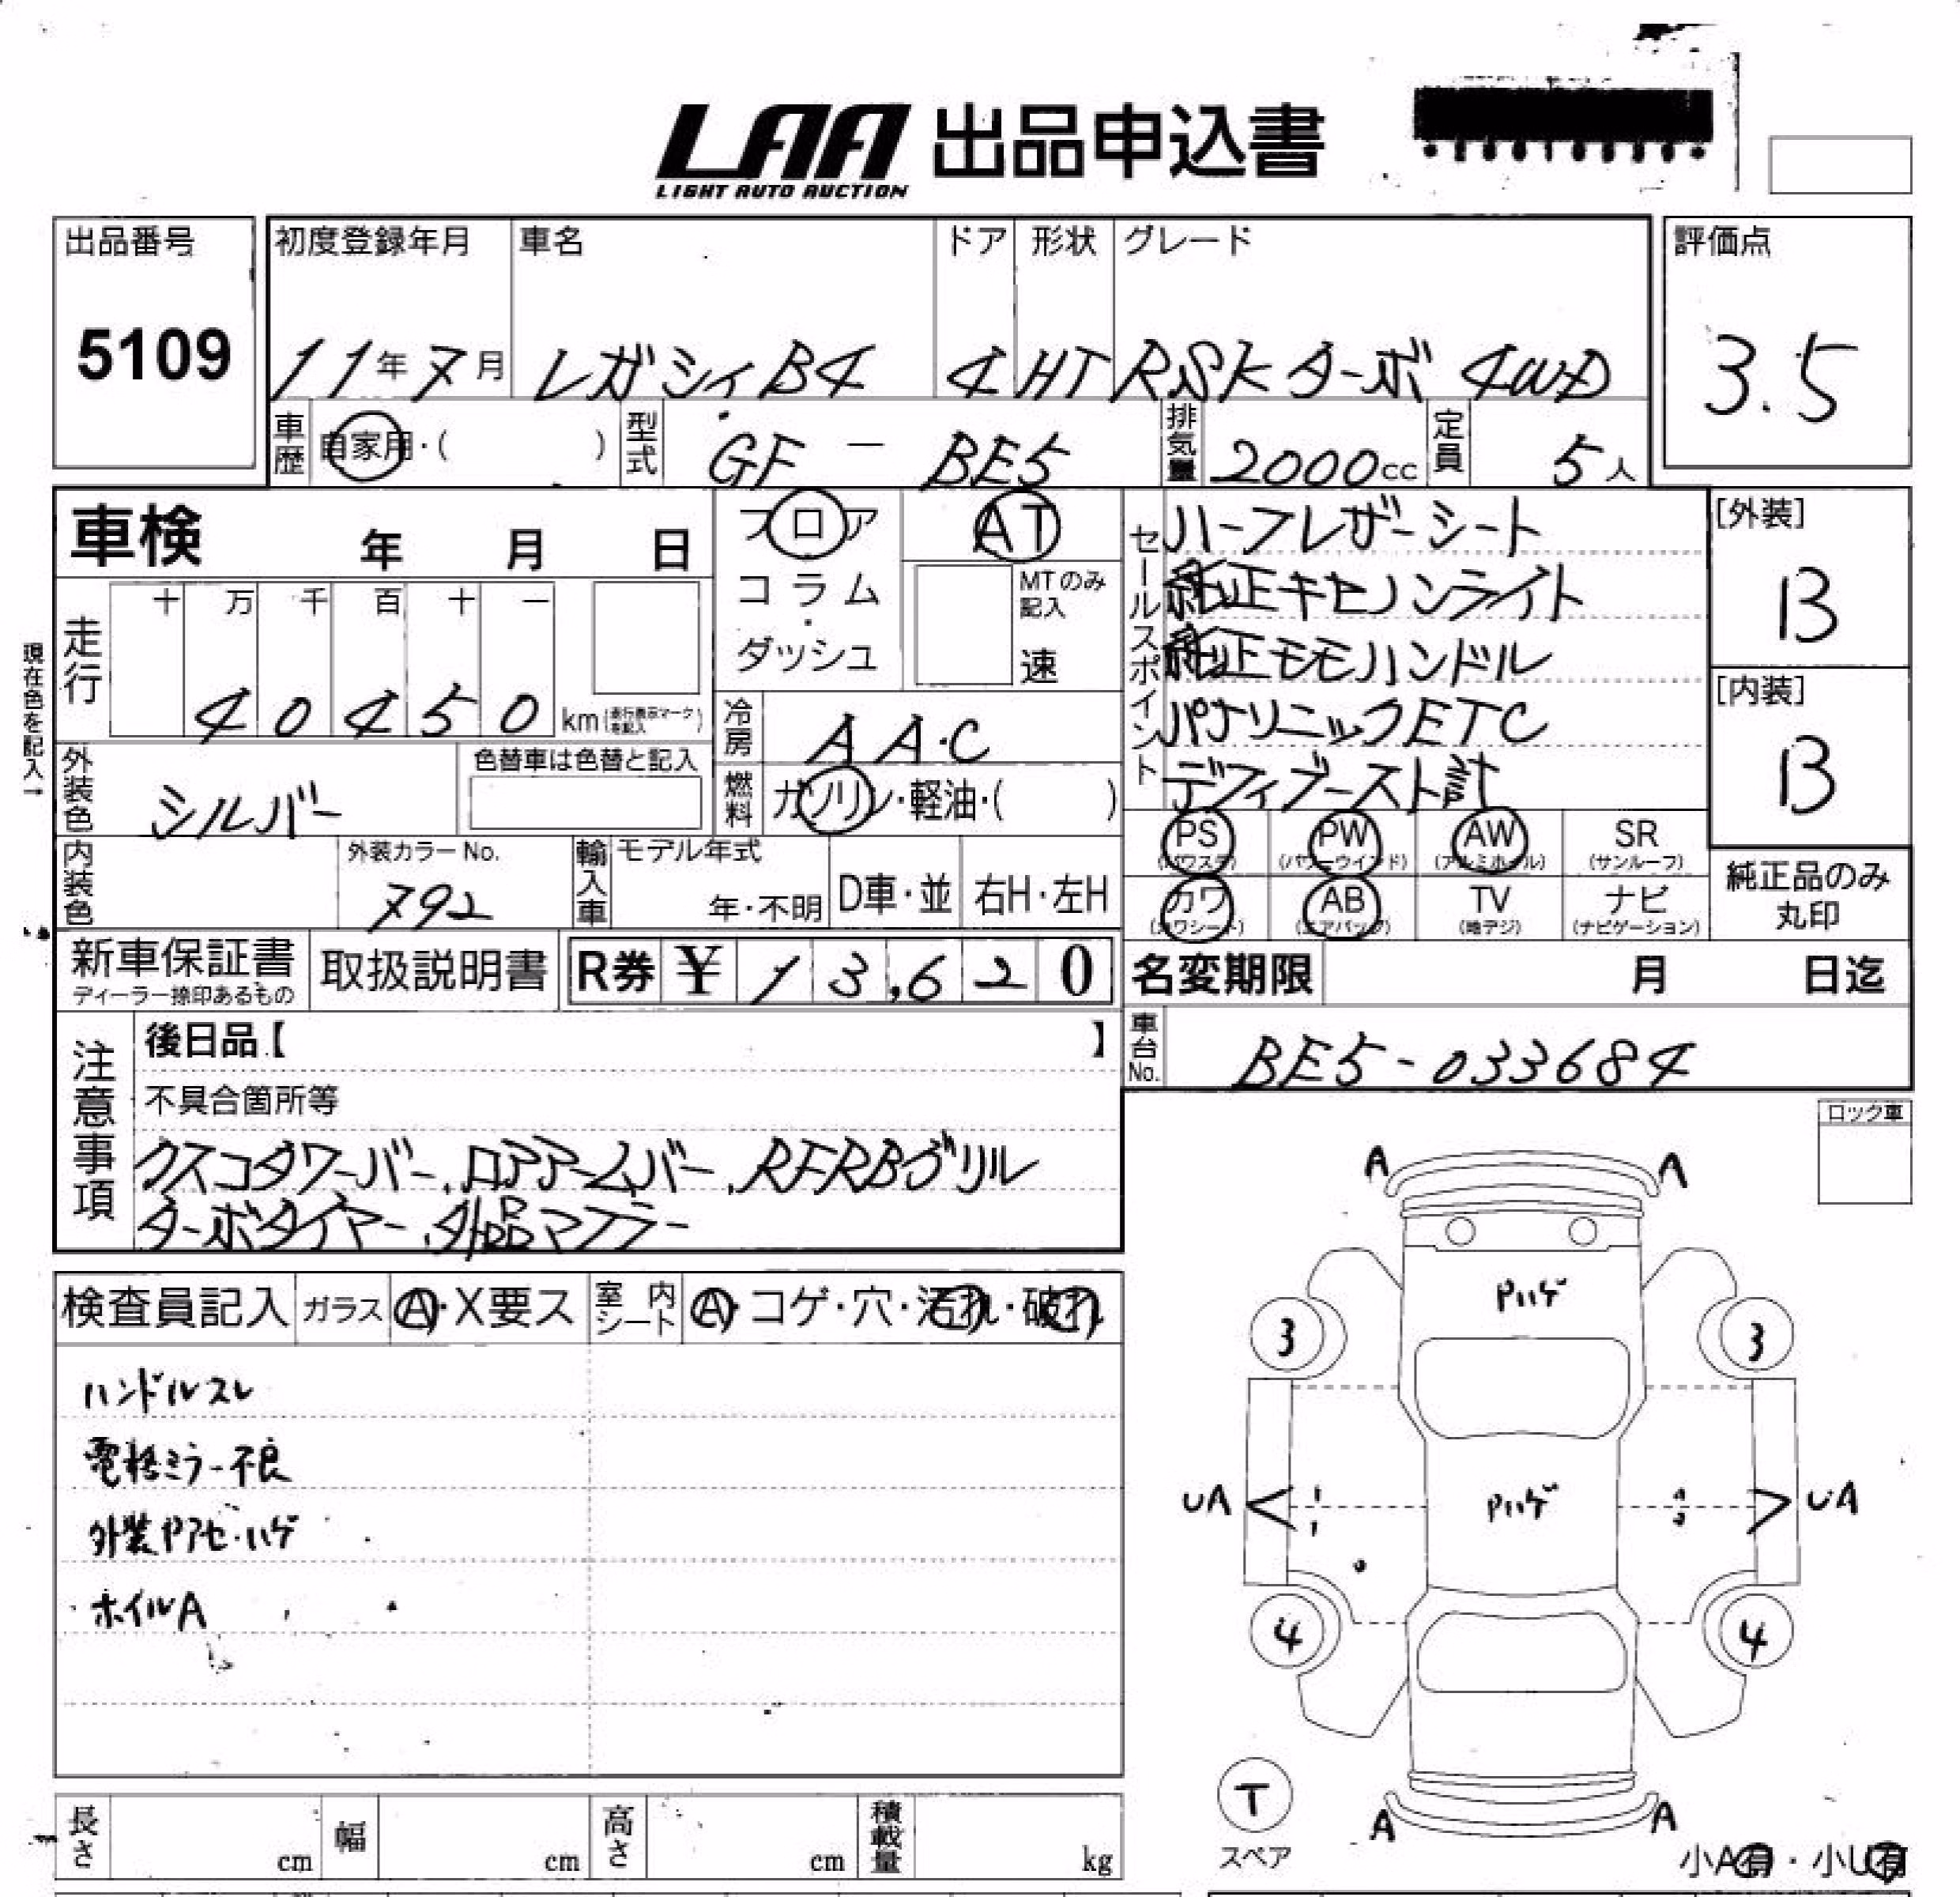 LAA 出品申込書
LIGHT AUTO AUCTION
出品番号
5109
初度登録年月 車名 ドア 形状 グレード
11年7月 レガシィB4 4 HT RSKターボ 4WD
評価点
3.5
車歴 自家用・( ) 型式 GF - BE5 排気量 2000cc 定員 5人
車検 年 月 日
フロア
コラム
ダッシュ
AT
MTのみ
記入
速
セールスポイント
ハーフレザーシート
純正キセノンライト
純正モモハンドル
パナソニックETC
デフィブースト計
[外装]
B
[内装]
B
現在色を記入→
走行 十 万 千 百 十 一
40450 km(走行表示マークを記入)
外装色 シルバー
色替車は色替と記入
冷房 AA・C
燃料 ガソリン・軽油・( )
内装色
外装カラーNo.
792
輸入車 モデル年式
年・不明 D車・並 右H・左H
PS PW AW SR
(パワステ) (パワーウインド) (アルミホイル) (サンルーフ)
カワ AB TV ナビ
(カワシート) (エアバッグ) (地デジ) (ナビゲーション)
純正品のみ
丸印
新車保証書
ディーラー捺印あるもの
取扱説明書
R券 ¥ 13,620
名変期限 月 日迄
車台No. BE5-033684
注意事項
後日品【 】
不具合箇所等
クスコタワーバー、ロアアームバー、RFRBグリル
ターボタイマー、外品マフラー
ロック車
検査員記入 ガラス A・X要ス 室内シート A・コゲ・穴・汚れ・破れ
ハンドルスレ
電格ミラー不良
外装Pアセ・ハゲ
ホイルA
A A
Pハゲ
3 3
UA Pハゲ UA
4 4
T
スペア
A A
小A有・小U有
長さ cm 幅 cm 高さ cm 積載量 kg